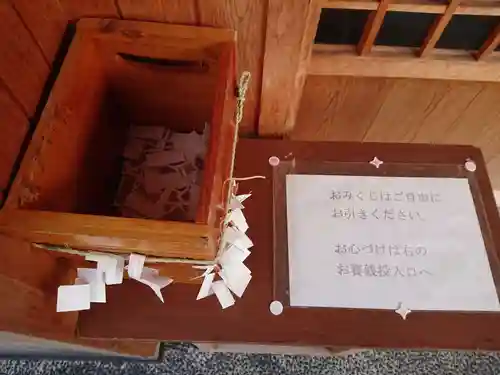 おみくじはご自由に
お引きください。
お心づけは右の
お賽銭投入口へ